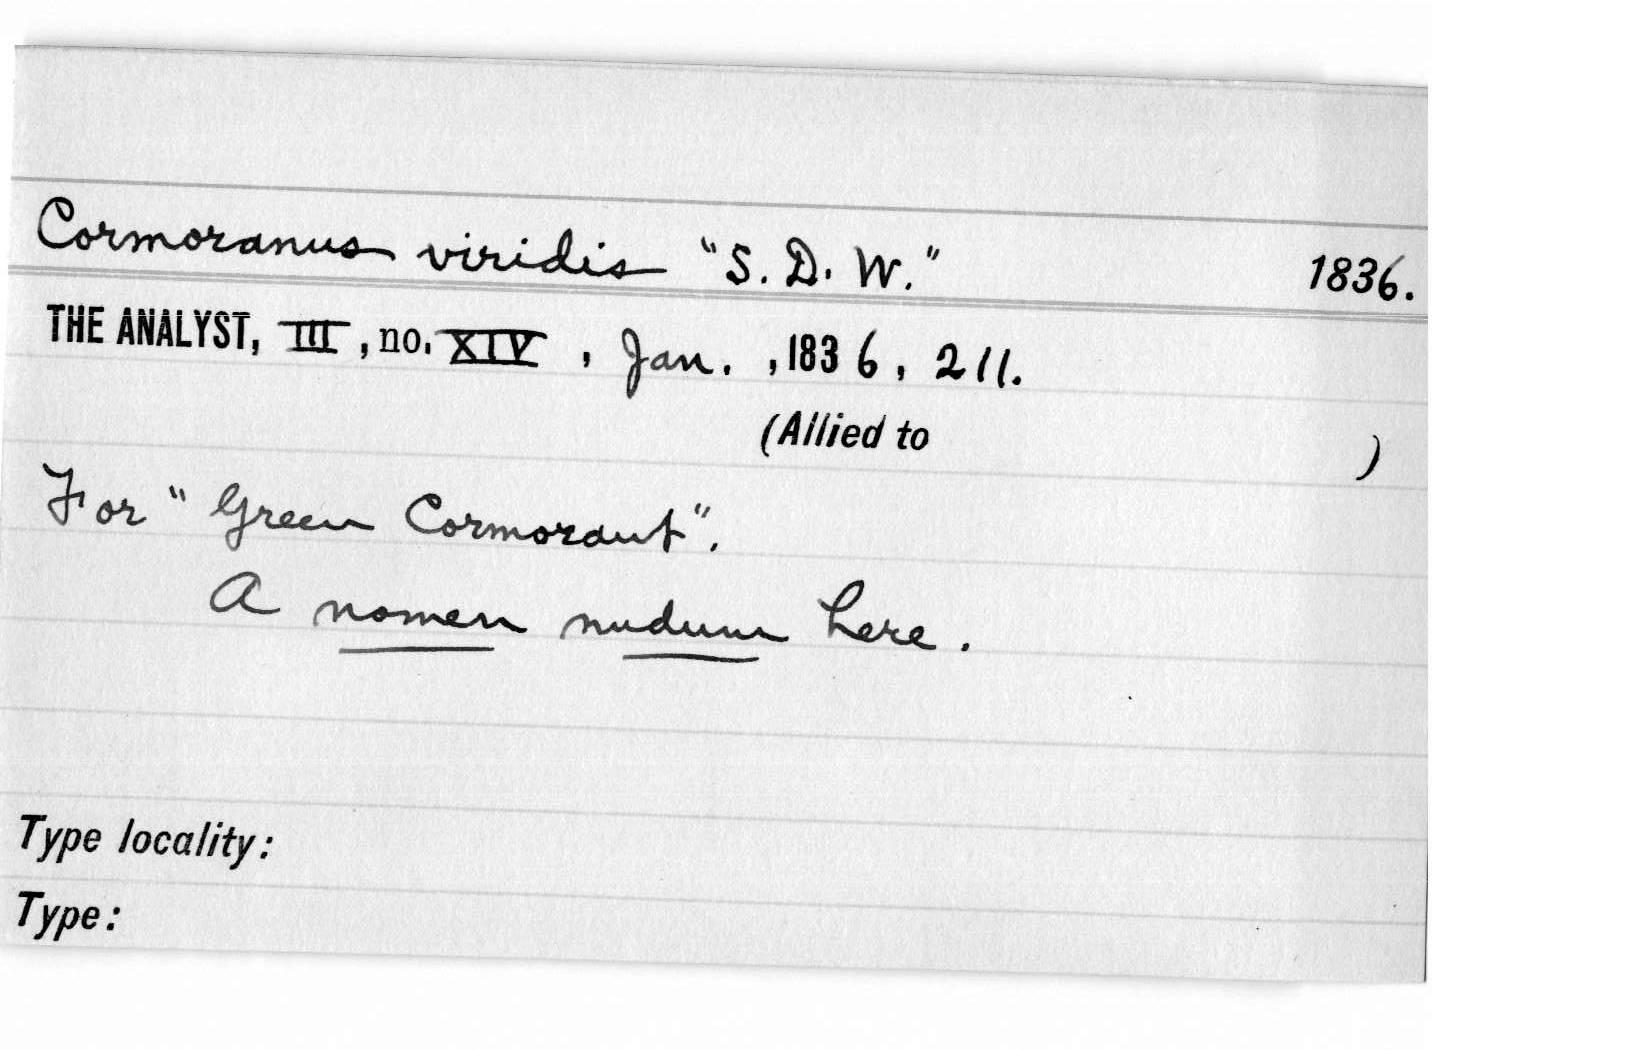 Cormoranus viridis "S. D. W." 1836.
THE ANALYST, III, no. XIV, Jan. , 1836, 211.
(Allied to )
For "Green Cormorant".
A nomen nudum here.
Type locality:
Type: